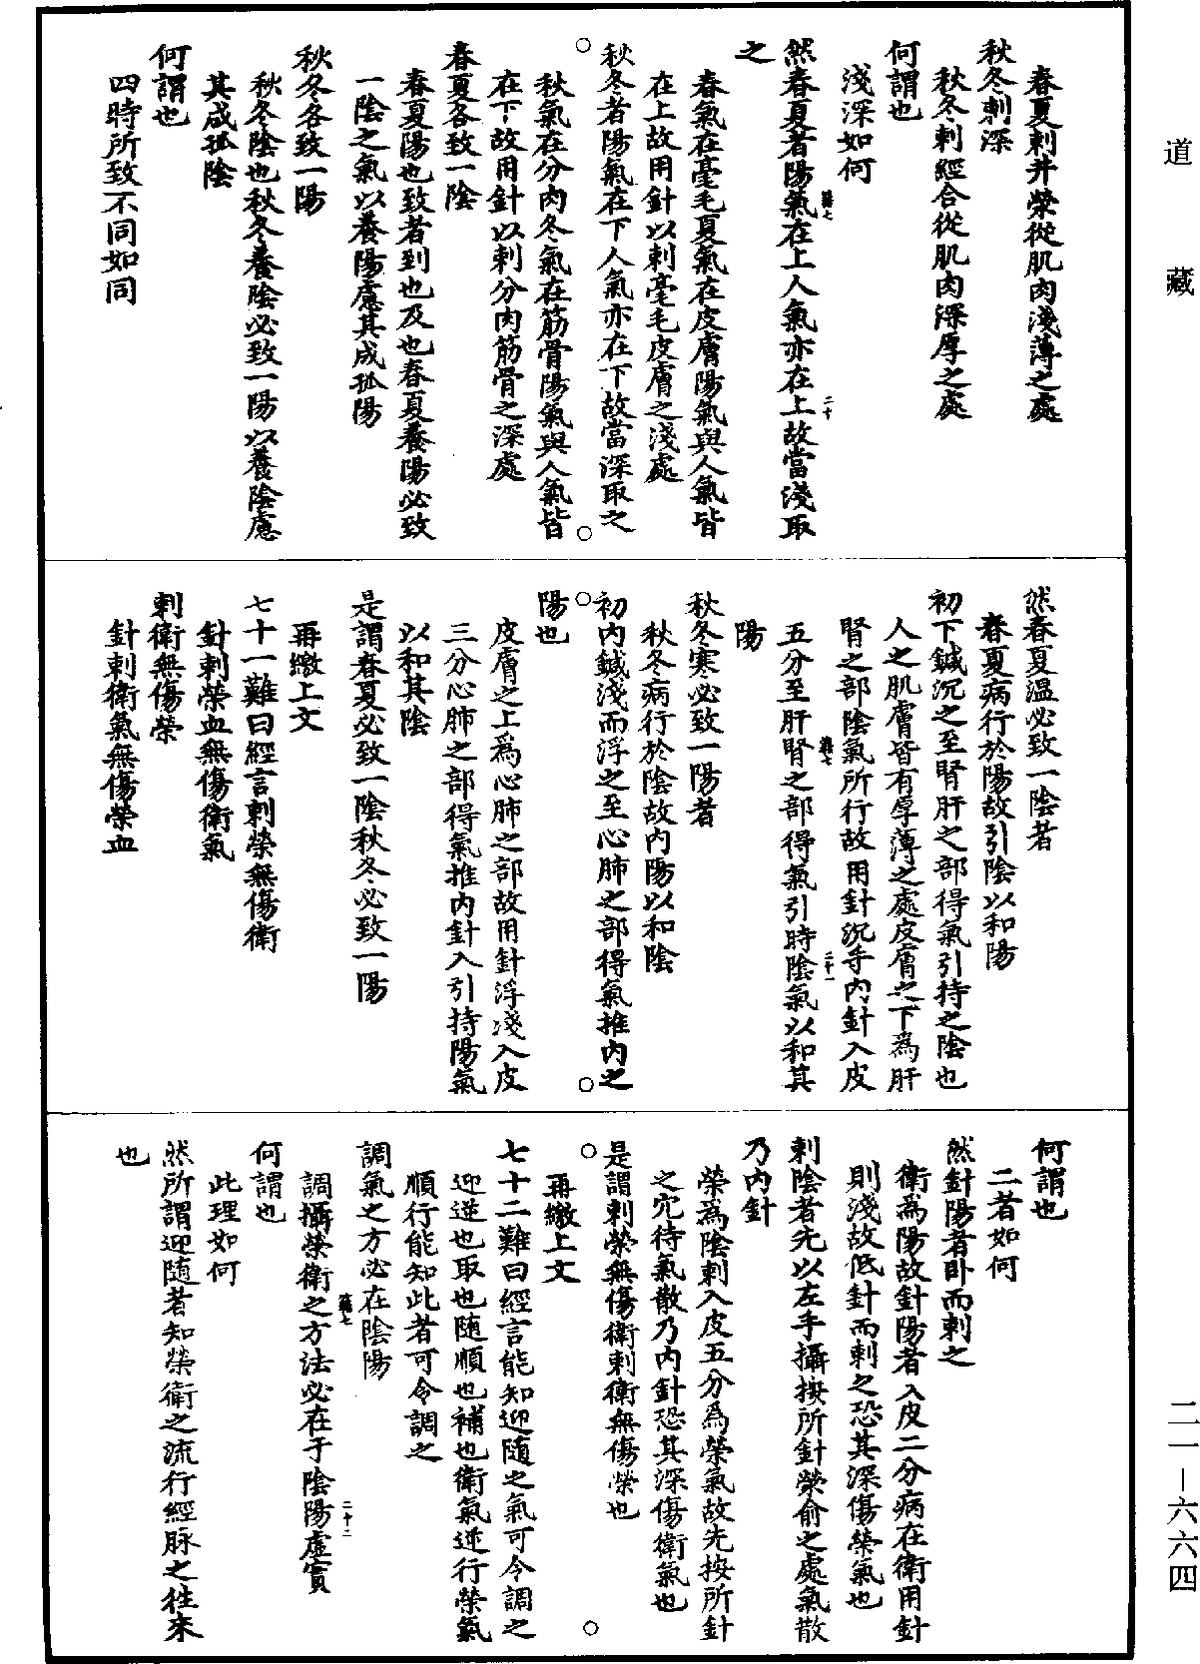 道藏
春夏刺井滎從肌肉淺薄之處
秋冬刺深
秋冬刺經合從肌肉深厚之處
何謂也
淺深如何
然春夏者陽氣在上人氣亦在上故當淺取
之
春氣在毫毛夏氣在皮膚陽氣與人氣皆
在上故用針以刺毫毛皮膚之淺處
秋冬者陽氣在下人氣亦在下故當深取之
秋氣在分肉冬氣在筋骨陽氣與人氣皆
在下故用針以刺分肉筋骨之深處
春夏各致一陰
春夏陽也致者到也及也春夏養陽必致
一陰之氣以養陽慮其成孤陽
秋冬各致一陽
秋冬陰也秋冬養陰必致一陽以養陰慮
其成孤陰
何謂也
四時所致不同如同
然春夏溫必致一陰者
春夏病行於陽故引陰以和陽
初下鍼沉之至腎肝之部得氣引持之陰也
人之肌膚皆有厚薄之處皮膚之下為肝
腎之部陰氣所行故用針沉手內針入皮
五分至肝腎之部得氣引時陰氣以和其
陽
秋冬寒必致一陽者
秋冬病行於陰故內陽以和陰
初內鍼淺而浮之至心肺之部得氣推內之
陽也
皮膚之上為心肺之部故用針浮淺入皮
三分心肺之部得氣推內針入引持陽氣
以和其陰
是謂春夏必致一陰秋冬必致一陽
再繳上文
七十一難曰經言刺榮無傷衛
針刺榮血無傷衛氣
刺衛無傷榮
針刺衛氣無傷榮血
何謂也
二者如何
然針陽者臥而刺之
衛為陽故針陽者入皮二分病在衛用針
則淺故低針而刺之恐其深傷榮氣也
刺陰者先以左手攝按所針榮俞之處氣散
乃內針
榮為陰刺入皮五分為榮氣故先按所針
之穴待氣散乃內針恐其深傷衛氣也
是謂刺榮無傷衛刺衛無傷榮也
再繳上文
七十二難曰經言能知迎隨之氣可令調之
迎逆也取也隨順也補也衛氣逆行榮氣
順行能知此者可令調之
調氣之方必在陰陽
調攝榮衛之方法必在于陰陽虛實
何謂也
此理如何
然所謂迎隨者知榮衛之流行經脉之往來
也
二一—六六四